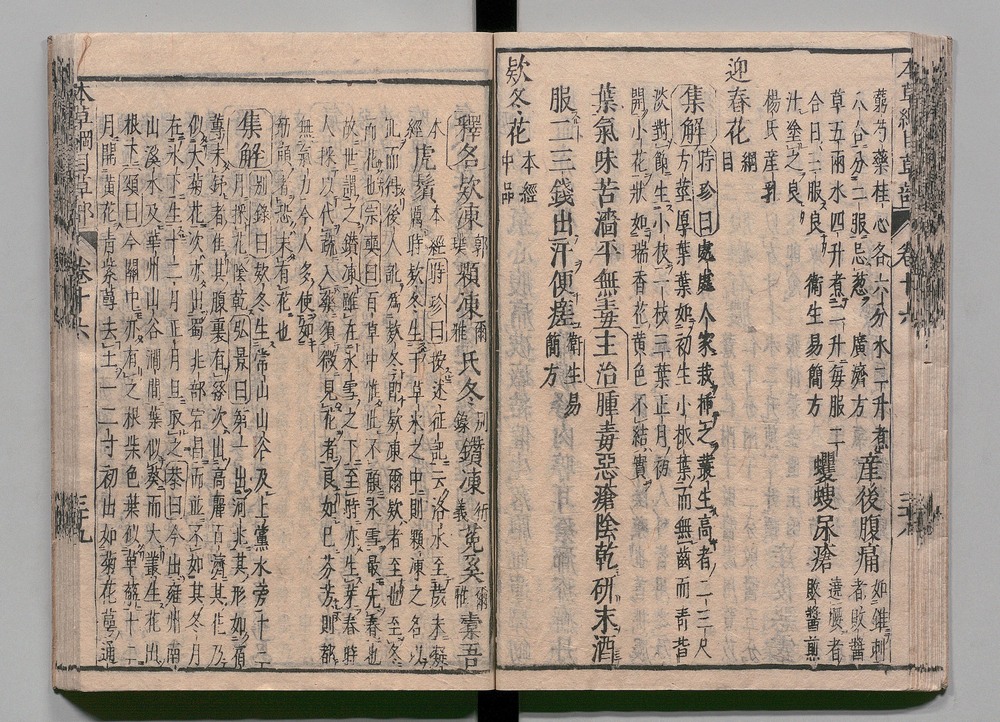 本草綱目草部 卷十六
芎芍藥桂心各六分水二升煮
八合分二服忌葱 廣濟方 産後腹痛 如錐刺者敗醬
草五兩水四升煮二升每服二
合日三服良 衛生易簡方 蠼螋尿瘡 遶腰者敗醬煎
汁塗之良 楊氏産乳
迎春花 綱目
集解 時珍曰處處人家栽插之叢生高者二三尺
方莖厚葉葉如初生小椒葉而無齒面青背
淡對節生小枝一枝三葉正月初
開小花狀如瑞香花黃色不結實
葉氣味苦濇平無毒主治腫毒惡瘡陰乾研末酒
服二三錢出汗便瘥 衛生易簡方
欵冬花 本經中品
釋名欵凍 郭璞 顆凍 爾雅 氏冬 別錄 鑽凍 衍義 菟奚 爾雅 橐吾
本經 虎鬚 本經 時珍曰按述征記云洛水至歲末凝
厲時欵冬生于草冰之中則顆凍之名以
此而得後人訛爲欵冬即欵凍爾欵者至也至冬
而花也宗奭曰百草中惟此不顧冰雪最先春也
故世謂之鑽凍雖在冰雪之下至時亦生芽春時
人採以代蔬入藥須微見花者良如已芬芳則都
無氣力今人多使如
筯頭者恐未有花也
集解 別錄曰欵冬生常山山谷及上黨水旁十一
月採花陰乾弘景曰第一出河北其形如宿
蓴未舒者佳其腹裏有絲次出高麗百濟其花乃
似大菊花次亦出蜀北部宕昌而並不如其冬月
在冰下生十二月正月旦取之恭曰今出雍州南
山溪水及華州山谷澗間葉似葵而大叢生花出
根下頌曰今關中亦有之根紫色葉似萆薢十二
月開黃花青紫萼去土一二寸初出如菊花萼通
本草綱目草部 卷十六